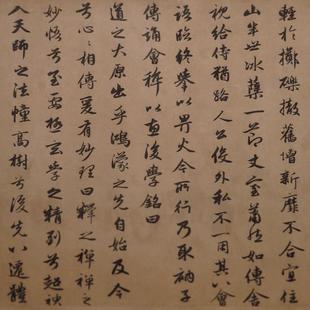 輕於擲礫撤舊增新靡不合宜住
山半世冰蘗一節丈室蕭然如傳舍
視給侍猶路人公復外私不一用其以會
語臨終舉以畀火今所行乃取衲子
傳誦會稡以惠後學銘曰
道之大原出乎鴻濛之先自始及今
兮心心相傳爰有妙理曰釋之禪禪之
妙悟兮至極玄學之精到兮超
人天師之法幢高樹兮後先以遷體